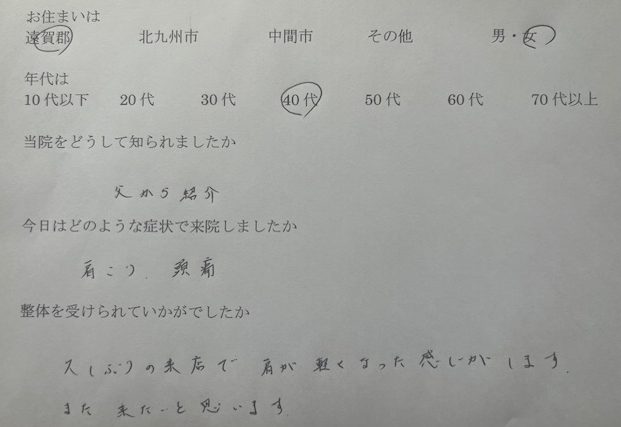 お住まいは
遠賀郡 北九州市 中間市 その他 男・女
年代は
10代以下 20代 30代 40代 50代 60代 70代以上
当院をどうして知られましたか
父から紹介
今日はどのような症状で来院しましたか
肩こり、頭痛
整体を受けられていかがでしたか
久しぶりの来店で肩が軽くなった感じがします。
また来たいと思います。